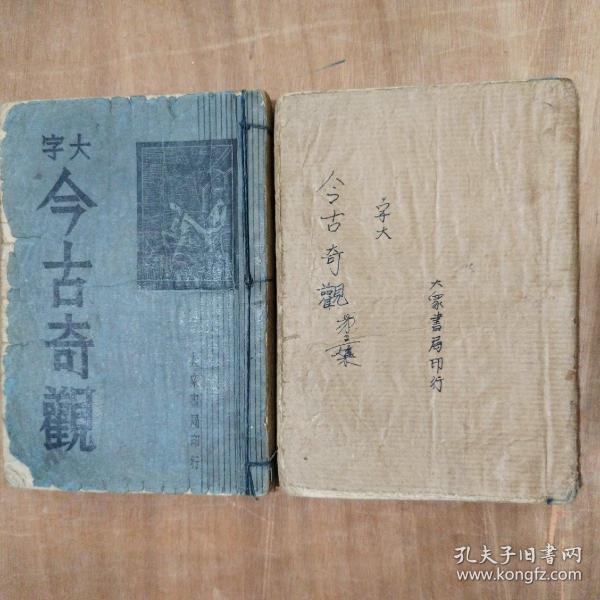 大字
今古奇觀
大眾書局印行
字大
今古奇觀第三集
大眾書局印行
孔夫子旧书网
www.kongfz.com